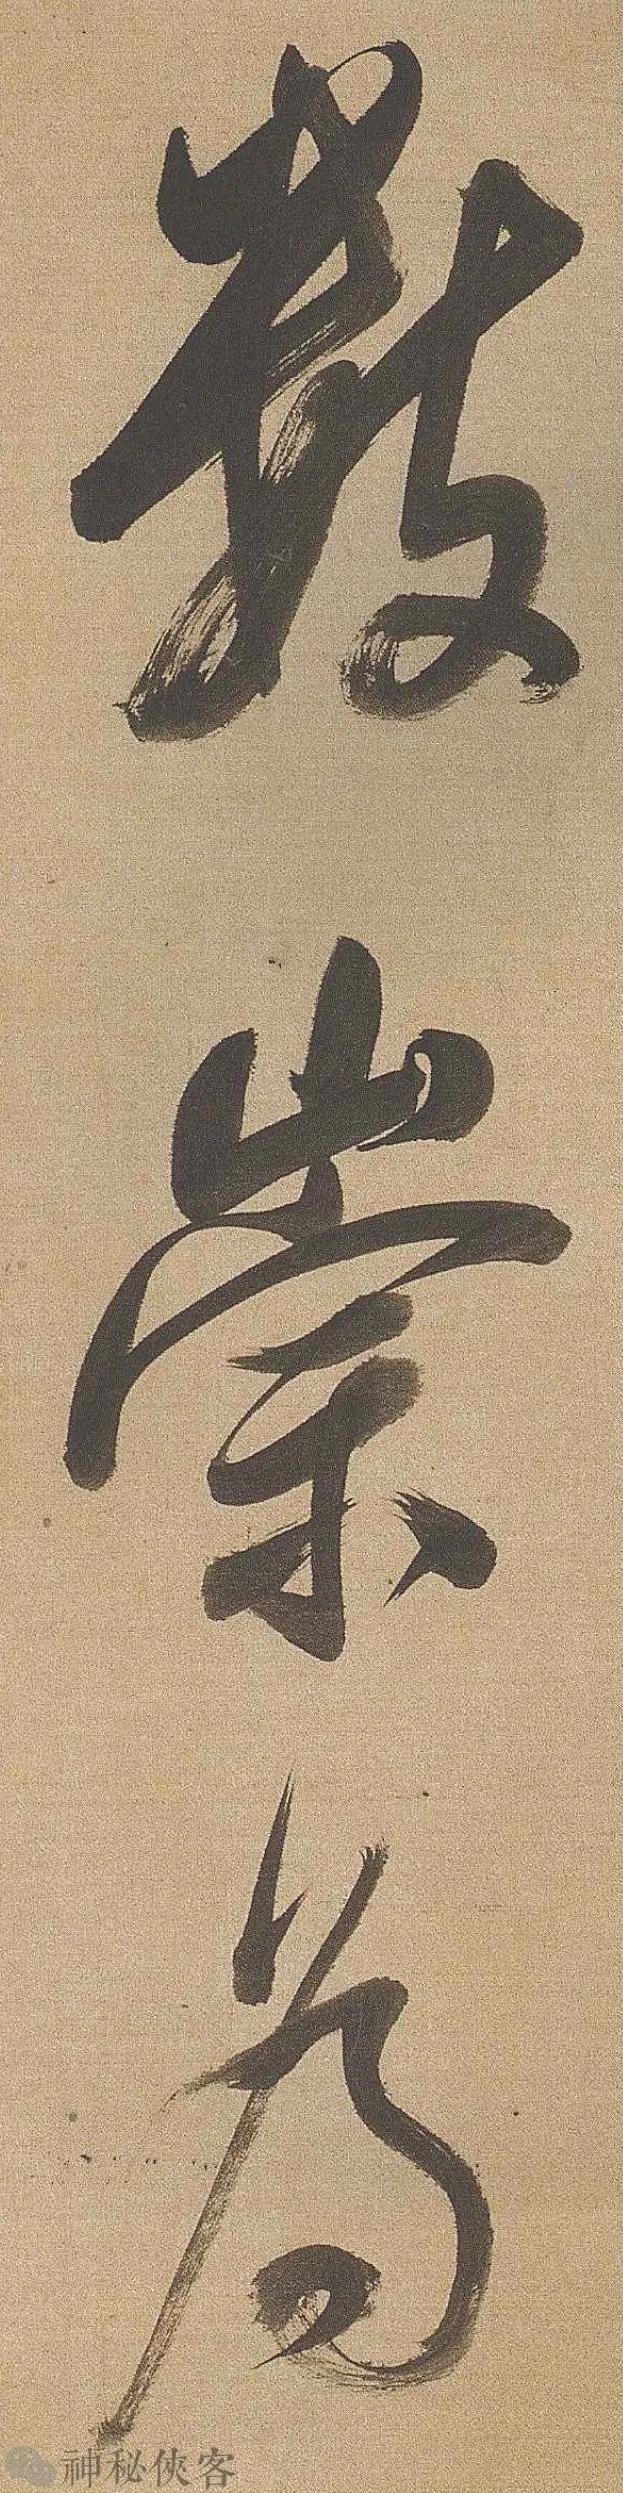 數
崇
為
神秘俠客